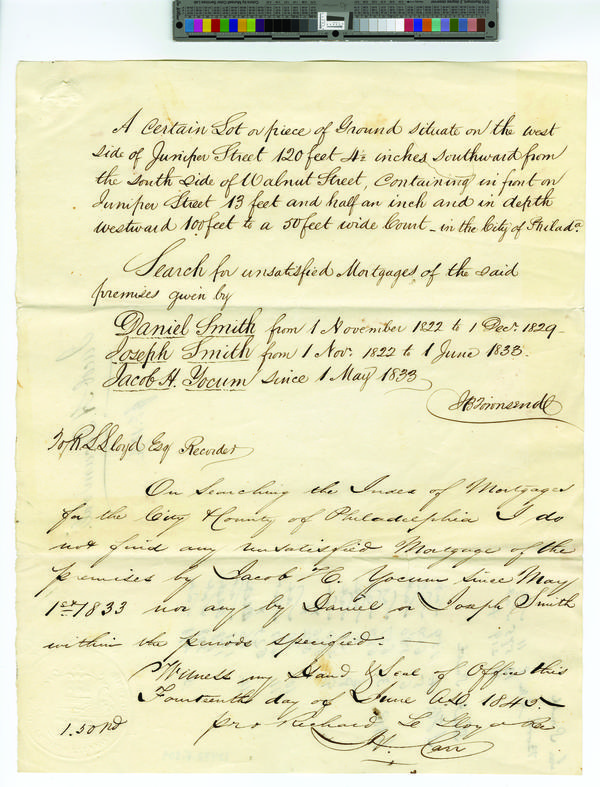 A Certain Lot or piece of Ground situate on the west
side of Juniper Street 120 feet 4½ inches southward from
the south side of Walnut Street, Containing in front on
Juniper Street 13 feet and half an inch and in depth
westward 100 feet to a 50 feet wide Court - in the City of Philada.
Search for unsatisfied Mortgages of the said
premises given by
Daniel Smith from 1 November 1822 to 1 Decr. 1829-
Joseph Smith from 1 Nov. 1822 to 1 June 1833.
Jacob H. Yocum since 1 May 1833
HB Townsend
To R. L. Lloyd Esq Recorder
On searching the Index of Mortgages
for the City & County of Philadelphia I do
not find any unsatisfied Mortgage of the
premises by Jacob H. Yocum since May
1st 1833 nor any by Daniel or Joseph Smith
within the periods specified. —
Witness my Hand & Seal of Office this
Fourteenth day of June A.D. 1845.
1.50 pd pro Richard L Lloyd Re
H. Carr